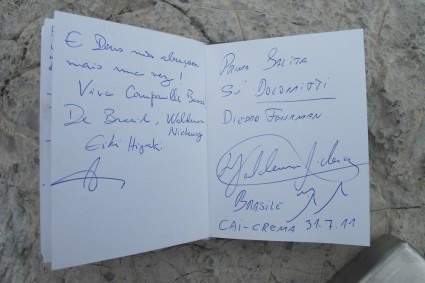 E Deus nos abraçou
mais uma vez!
Viva Campanile Basso
Do Brasil, Waldemar
Niclevicz
Eiki Higaki
PRIMA SALITA
SU DOLOMITTI
DIEGO FOHRMAN
BRASILE
CAI-CREMA 31.7.11